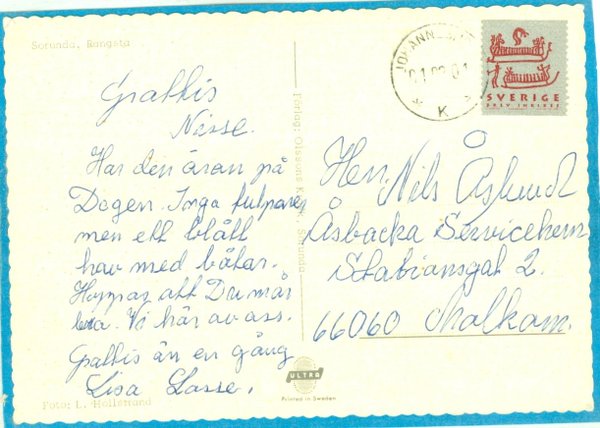 Sorunda, Rangsta
Grattis
Nisse.
Har den äran på
Dagen. Inga tulpaner
men ett blått
hav med båtar.
Hoppas att Du mår
bra. Vi här av oss.
Grattis än en gång
Lisa Lasse.
Foto: L. Hallerand
Förlag: Olssons Sorunda
ULTRA
Printed in Sweden
JOHANN
01.08.01
K
SVERIGE
BREV INRIKES
Herr Nils Åslund
Åsbacka Servicehem
Stabiansgat 2.
66060 Molkom.